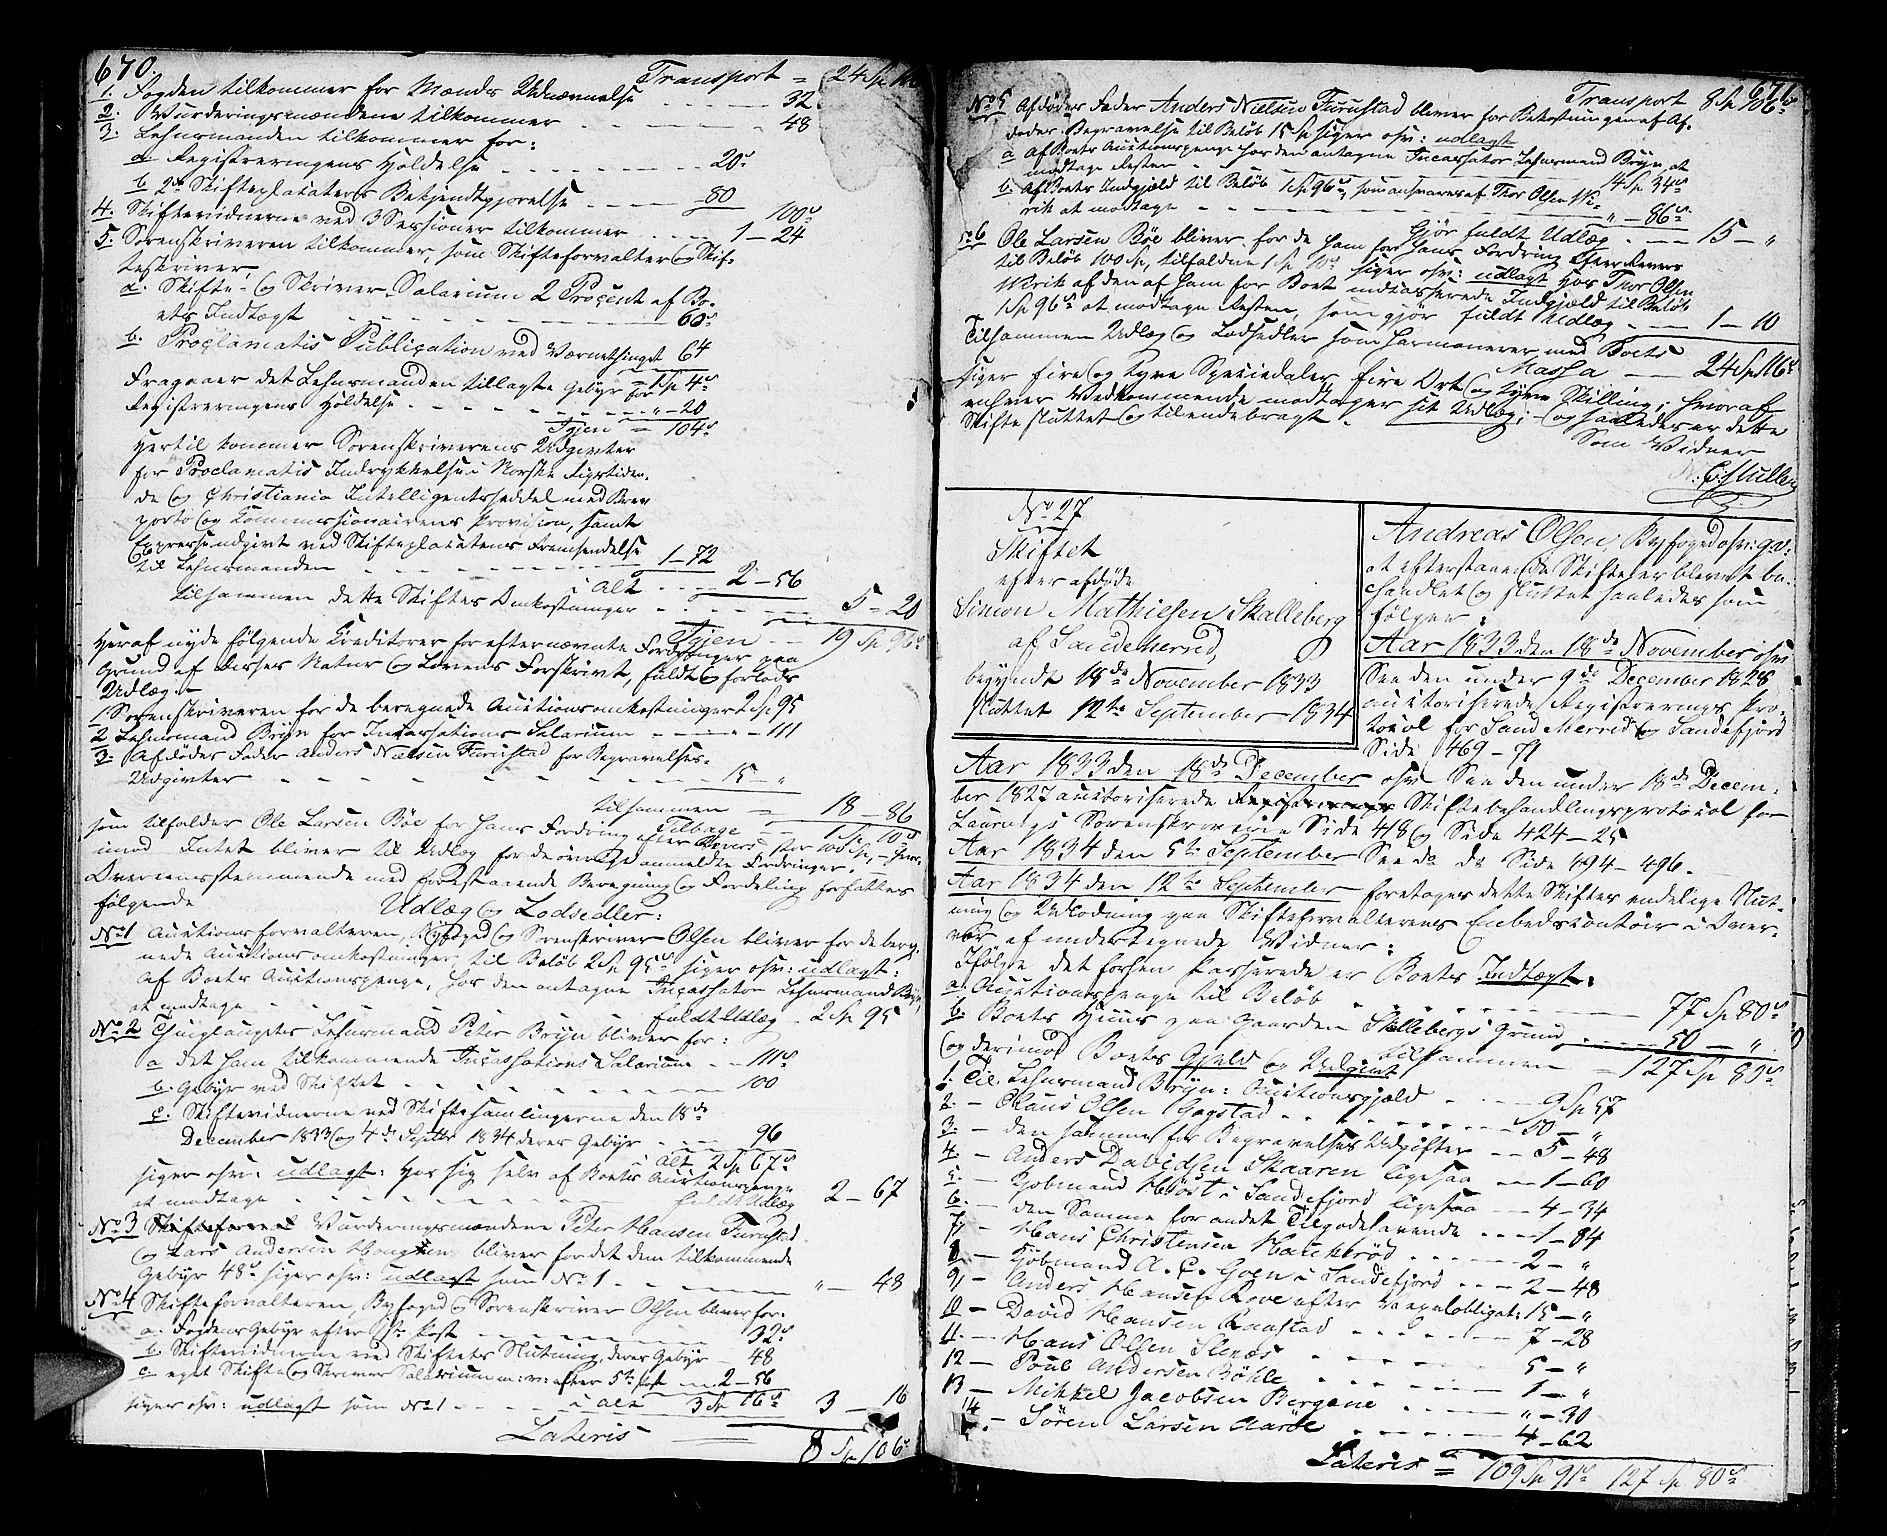 670.
Transport = 24 Sp.
1. Fogden tilkommer for Mænds Udnævnelse - - - 32
2. Vurderingsmændene tilkommer - - - 48
3. Lehnsmanden tilkommer for:
a Registreringens Holdelse - - - 20s
b 2de Skifteplacaters Bekjendtgjørelse - - - 80
100s
4. Skiftevidnerne ved 3 Sessioner tilkommer - - - 1 - 24
5. Sorenskriveren tilkommer, som Skifteforvalter og Skif-
teskriver,
a. Skifte- og Skriver Salarium 2 Procent af Bo-
ets Indtægt - - - 60s
b. Proclamatis Publication ved Værnethinget 64
= 1 Sp 4s
Fragaaer det Lehnsmanden tillagte Gebyr for
Registreringens Holdelse - - - " - 20
Igjen = 104s
Hertil kommer Sorenskriverens Udgivter
for Proclamatis Indrykkelse i Norske Rigstiden-
de og Christiania Intelligentsseddel med Brev
porto og Kommissionairens Provision, samt
Expresse udgivt ved Skifteplacatens Fremsendelse
til Lehnsmanden - - - 1 - 72
i alt - - - 2 - 56
tilsammen dette Skiftes Omkostninger - - - 5 - 20
Igjen - - 19 Sp 96s
Heraf nyde følgende Kreditorer for efternævnte Fordringer paa
Grund af disses Natur og Lovens Forskrivt, fuldt og forlods
Udlæg -
1 Sorenskriveren for de beregnede Auctionsomkostninger 2 Sp 95
2 Lehnsmand Bryn for Incassations Salarium - - - 111
3. Afdødes Fader Anders Nielsen Furustad for Begravelses-
Udgivter - - - 15 - "
tilsammen = 18 - 86
Tilbage - - 1 Sp 10s
som tilfalder Ole Larsen Bøe for hans Fordring efter Revers stor 100 Sp, - hvor-
imod Intet bliver til Udlæg for de øvrige anmeldte Fordringer.
Overeensstemmende med forestaaende Beregning og Fordeling forfattes
følgende
Udlæg og Lodsedler:
No 1 Auctionsforvalteren, Byfoged og Sorenskriver Olsen bliver for de bereg-
nede Auctionsomkostninger, til Beløb 2 Sp 95s siger osv: udlagt:
Af Boets Auctionspenge, hos den antagne Incassator Lehnsmand Bryn,
at modtage - - - fuldt Udlæg - 2 Sp 95
No 2 Thinglaugets Lehnsmand Peter Bryn bliver for:
a det ham tilkommende Incassations Salarium - - 111s
b. Gebyr ved Skiftet - - - 100
c. Skiftevidnerne ved Skiftesamlingerne den 18de
December 1833 og 4de Septbr 1834 deres Gebyr - - - 96
i alt 2 Sp 67s
siger osv: udlagt: Hos sig selv af Boets Auctionspenge
at modtage - - - fuldt Udlæg 2 - 67
No 3 Vurderingsmændene Peter Hansen Furustad
og Lars Andersen bliver for det dem tilkommende
Gebyr 48s siger osv: udlagt som No 1 - - - " - 48
No 4 Skifteforvalteren, Byfoged og Sorenskriver Olsen bliver for:
a. Fogdens Gebyr efter 1ste Post - - - 32s
b. Skiftevidnerne ved Skiftets Slutning, deres Gebyr - 48
c eget Skifte og Skriver Salarium m: v: efter 5te Post - - 2 - 56
i alt 3 Sp 16s
siger osv: udlagt som No 1 - - - 3 - 16
Lateris = 8 Sp 106s
671.
Transport 8 Sp 106s
No 5 Afdødes Fader Anders Nielsen Furustad bliver for Bekostningen af Af-
dødes Begravelse til Beløb 15 Sp siger osv: udlagt
a Af Boets Auctionspenge hos den antagne Incassator Lehnsmand Bryn at
modtage Resten - - - 14 Sp 34s
b. Af Boets Indgjæld til Beløb 1 Sp 96s, som ansvares af Thor Olsen
Wirik at modtage - - - " - 86s
Gjør fuldt Udlæg - - - 15 - "
No 6 Ole Larsen Bøe bliver for de ham for hans Fordring efter Revers
til Beløb 100 Sp, tilfaldne 1 Sp 10s siger osv: udlagt Hos Thor Olsen
Wirik af den af ham for Boet indcasserede Indgjæld til Beløb
1 Sp 96s at modtage Resten, som gjør fuldt Udlæg - - - 1 - 10
Tilsammen Udlæg og Lodsedler som harmonerer med Boets
Massa - - - 24 Sp 116s
siger fire og tyve Speciedaler fire Ort og tyve Skilling; hvoraf
enhver Vedkommende modtager sit Udlæg; - og saaledes er dette
Skifte sluttet og tilendebragt.
Som Vidner
N. C. Muller
No 27
Skiftet
efter afdøde
Simon Mathiesen Skalleberg
af Sandeherred,
begyndt 18de November 1833
sluttet 12te September 1834
Andreas Olsen, Byfoged osv: g. v:
at efterstaaende Skifte er blevet be-
handlet og sluttet saaledes som
følger:
Aar 1833 den 18de November osv
See den under 9de December 1828
auctoriserede Registrerings Pro-
tocol for Sandeherred og Sandefjord
Side 469 - 71
Aar 1833 den 18de December osv See den under 18de Decem-
ber 1827 auctoriserede Skiftebehandlingsprotocol for
Laurvigs Sorenskriverie Side 418 og Side 424 - 25
Aar 1834 den 5te September See do do Side 494 - 496.
Aar 1834 den 12te September foretoges dette Skiftes endelige Slut-
ning og Udlodning paa Skifteforvalterens Embedscontoir i Over-
vær af undertegnede Vidner:
Ifølge det forhen Passerede er Boets Indtægt:
a. Auctionspenge til Beløb - - - 77 Sp 80s
b. Boets Huus paa Gaarden Skallebergs Grund - - - 50 - "
tilsammen = 127 Sp 80s
og derimod Boets Gjeld og Udgivt
1. Til Lehnsmand Bryn: Auctionsgjæld - - - 9 Sp 57
2. - Claus Olsen Gogstad - - - 50 - "
3. - den samme for Begravelses Udgifter - - 5 - 48
4. - Anders Davidsen Skaaren ligesaa - - 1 - 60
5. - Kjøbmand Høst i Sandefjord ligesaa - - 4 - 34
6. - den Samme for andet Tilgodehavende - - - 1 - 84
7. - Hans Christensen Haukerød - - - 2 - "
8 - Kjøbmand A. C. Goen i Sandefjord - - - 2 - 48
9 - Anders Hansen Rove efter Vexelobligat: 15 - "
10 - David Hansen Raastad - - - 7 - 28
11. - Hans Olsen Stenaas - - - 5 - "
12 - Poul Andersen Bøhle - - - 1 - "
13 - Mikkel Jacobsen Bergene - - - " - 30
14. - Sören Larsen Aarøe - - - 4 - 62
Lateris = 109 Sp 91s 127 Sp. 80s